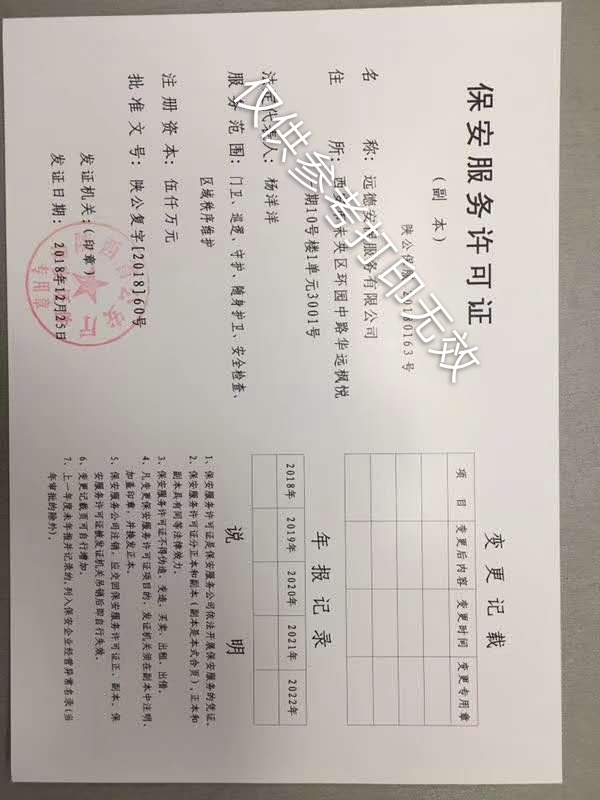 保安服务许可证
（副 本）
陕公保服 20180163号
名 称：远德安保服务有限公司
住 所：西安市未央区环园中路华远枫悦
期10号楼1单元3001号
法定代表人：杨洋洋
服务范围：门卫、巡逻、守护、随身护卫、安全检查、
区域秩序维护
注册资本：伍仟万元
批准文号：陕公复字[2018]60号
发证机关：（印章）
发证日期：2018年12月25日
专用章
仅供参考打印无效
变更记载
项 目 变更后内容 变更时间 变更专用章
年报记录
2018年 2019年 2020年 2021年 2022年
说 明
1、保安服务许可证是保安服务公司依法开展保安服务的凭证。
2、保安服务许可证分正本和副本（副本是本式合页），正本和
副本具有同等法律效力。
3、保安服务许可证不得伪造、变造、买卖、出租、出借。
4、凡变更保安服务许可证项目的，发证机关须在副本中注明、
加盖印章，并换发正本。
5、保安服务公司注销，应交回保安服务许可证正、副本。保
安服务许可证被发证机关吊销后即自行失效。
6、变更记载页可自行增加。
7、上一年度未年报并记录的，列入保安企业经营异常名录（当
年审批的除外）。